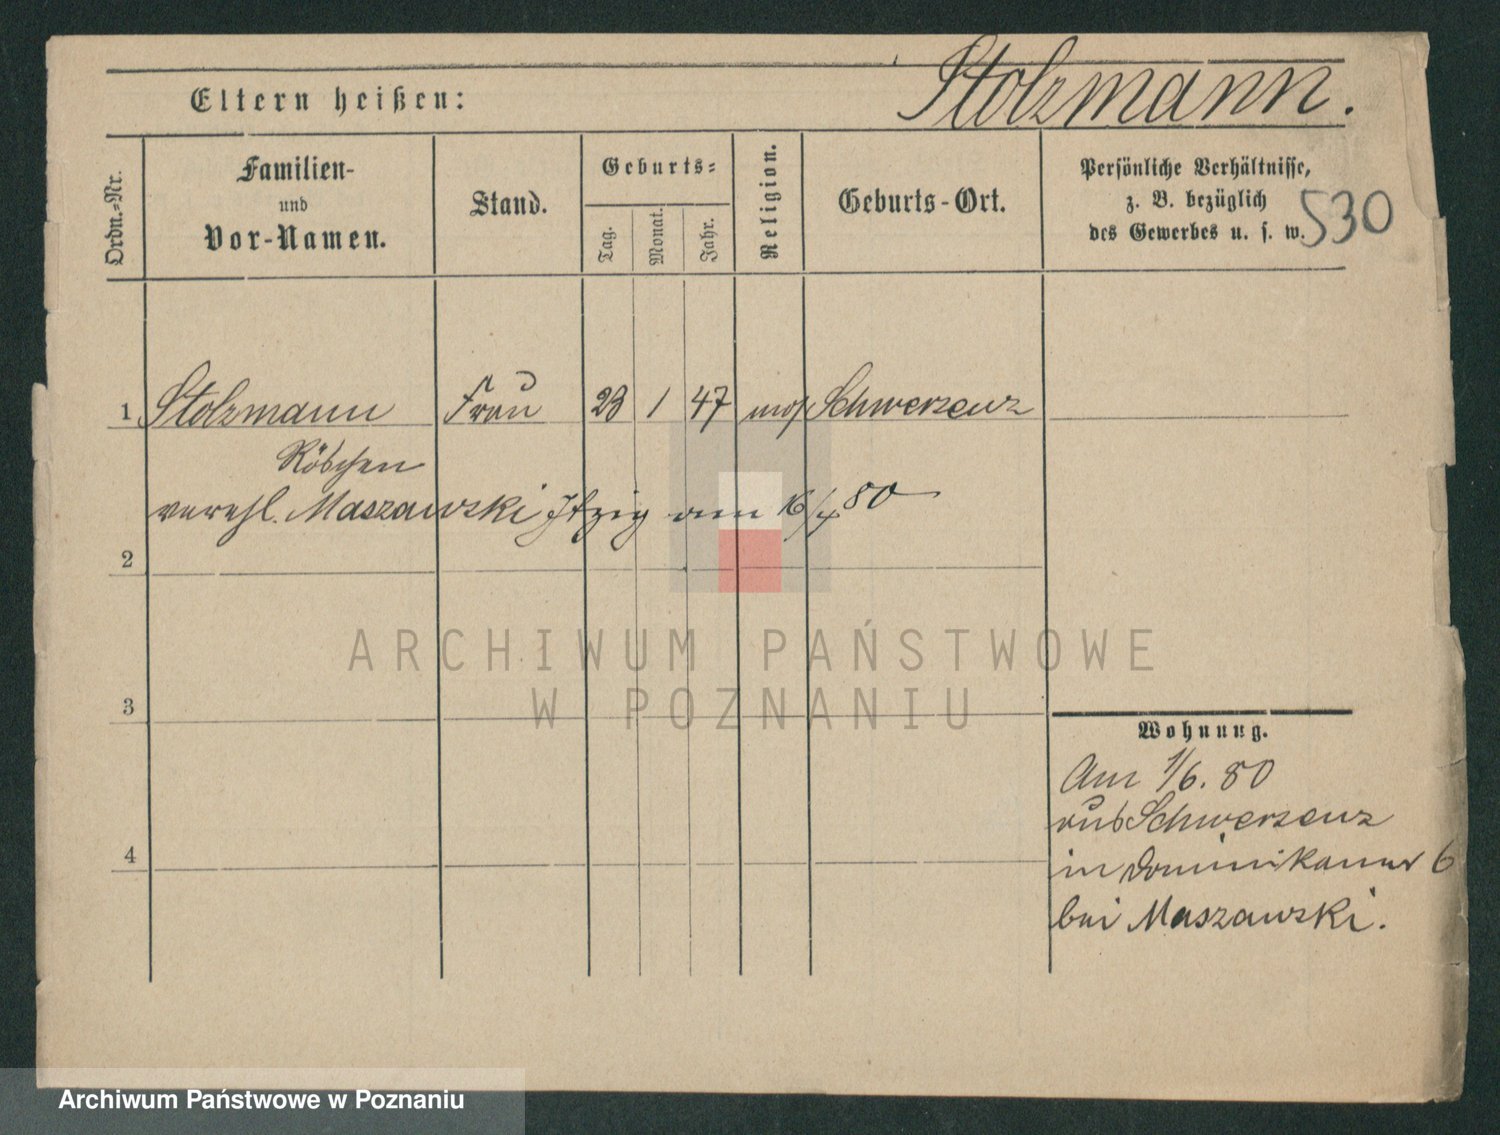 Stolzmann.
Eltern heißen:
Ordn.-Nr.
Familien-
und
Vor-Namen.
Stand.
Geburts-
Tag.
Monat.
Jahr.
Religion.
Geburts-Ort.
Persönliche Verhältnisse,
z. B. bezüglich
des Gewerbes u. s. w.
530
1 Stolzmann Frau 23 1 47 mos. Schwersenz
Röschen
verehl. Maszawski Itzig am 16/4 80
2
3
4
Wohnung.
Am 1/6. 80
aus Schwersenz
in Dominikaner 6
bei Maszawski.
ARCHIWUM PAŃSTWOWE
W POZNANIU
Archiwum Państwowe w Poznaniu